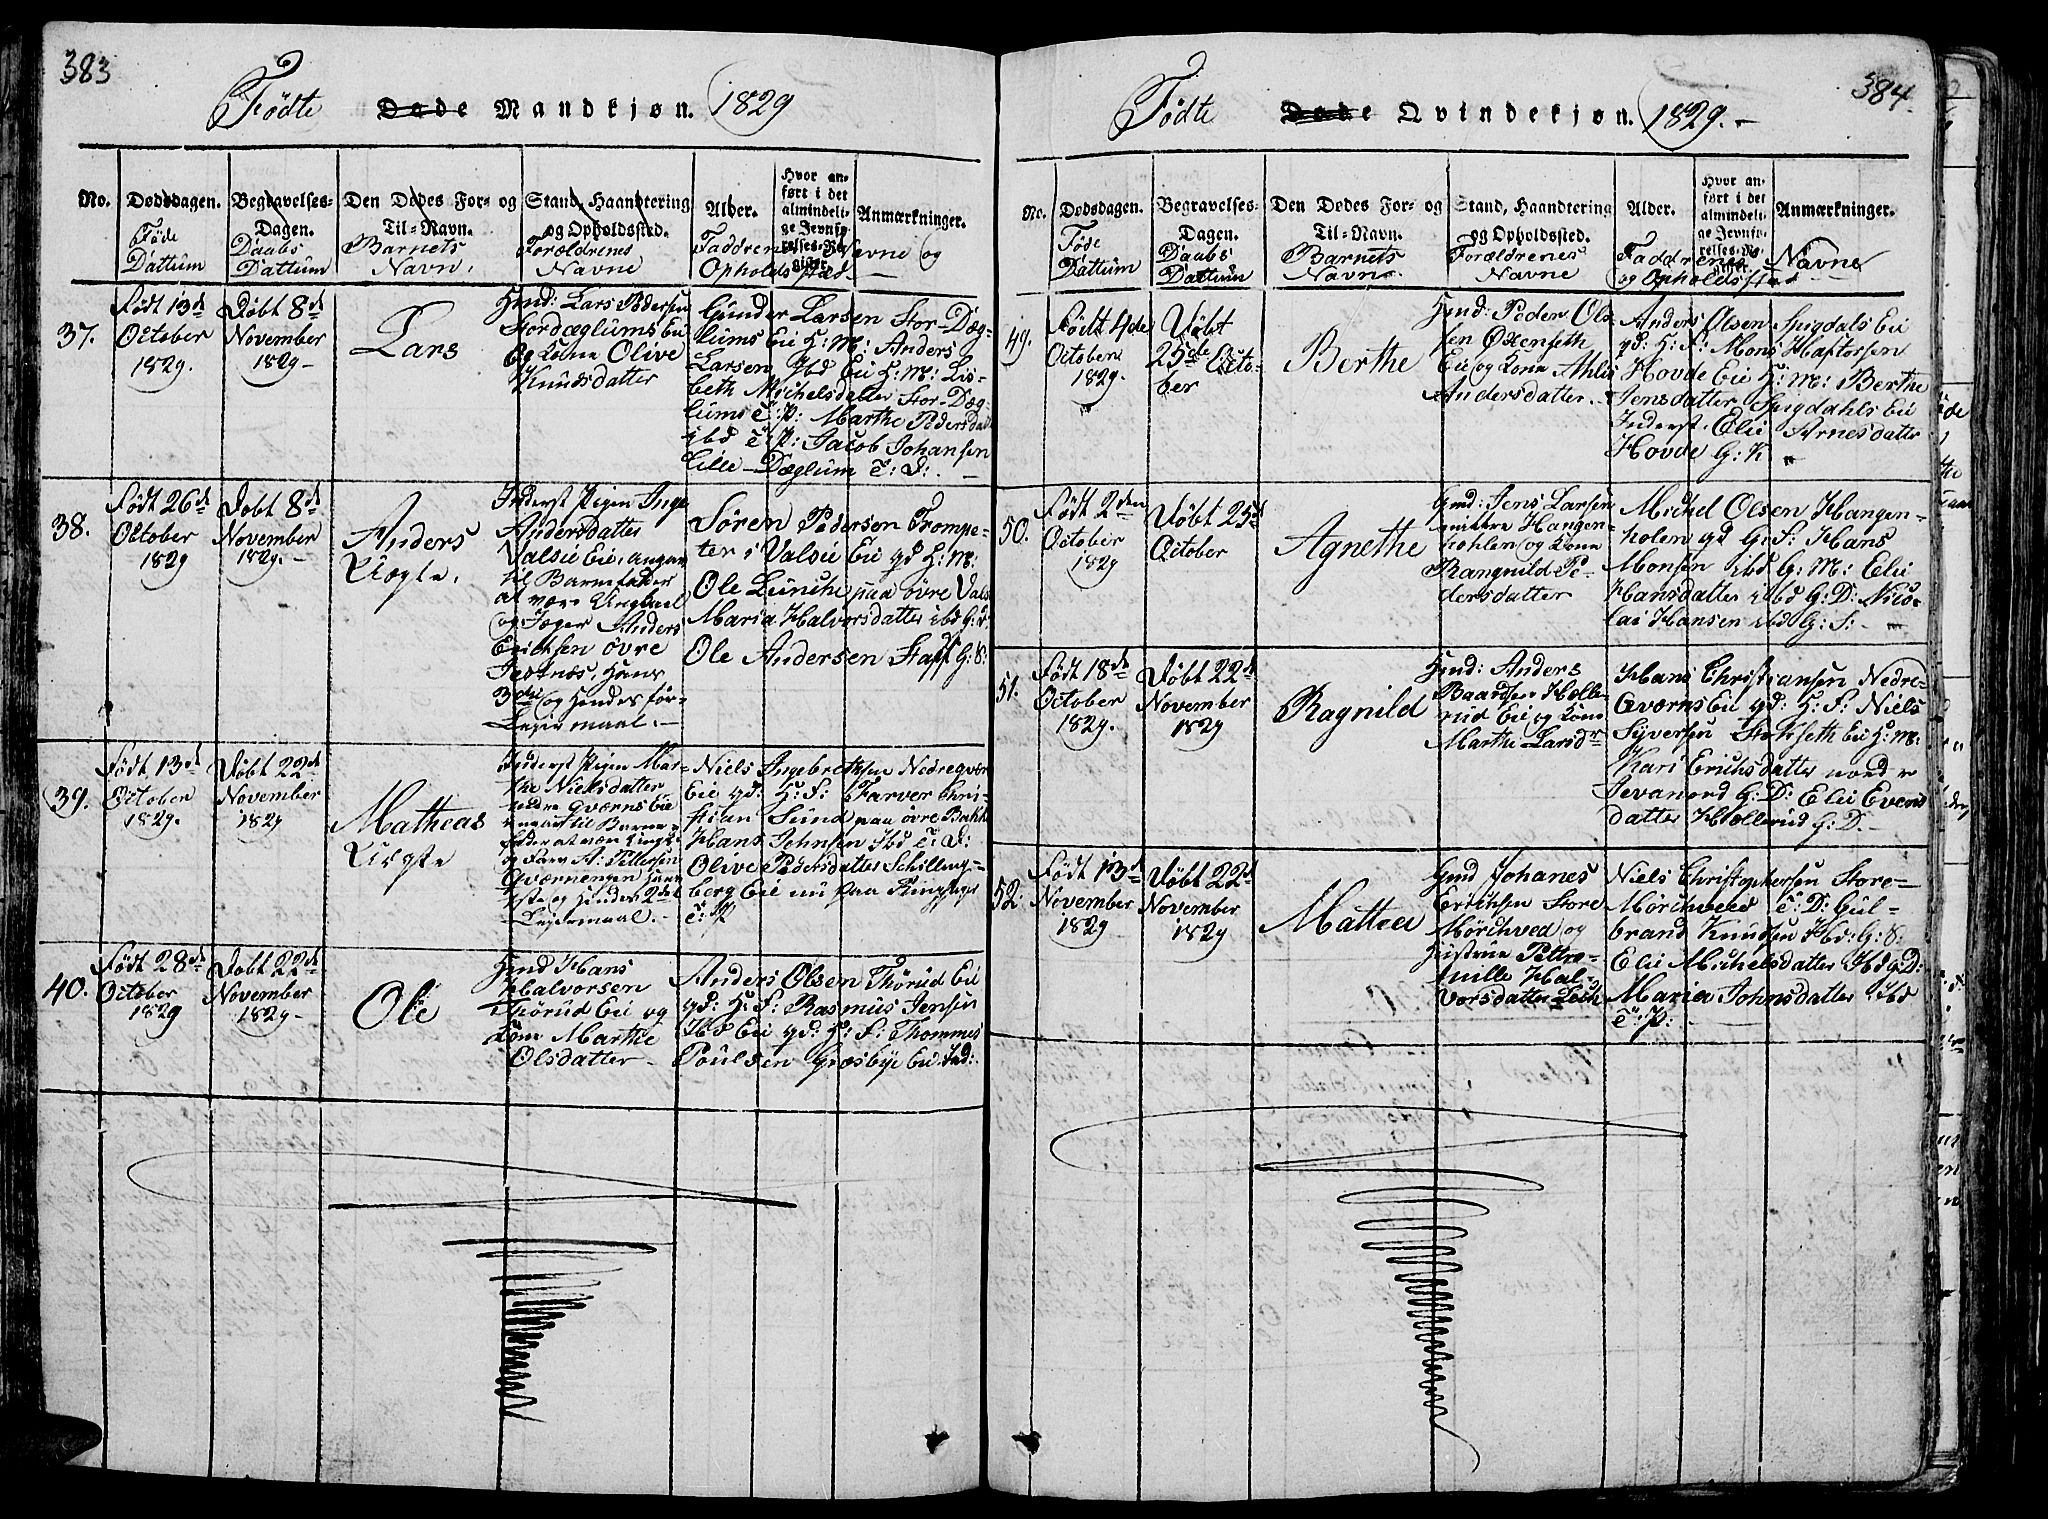 383
Fødte Døde Mandkjøn. 1829
No.
Dødsdagen.
Føde
Dattum
Begravelses-
Dagen.
Daabs
Dattum
Den Dødes For- og
Til-Navn.
Barnets
Navn.
Stand, Haandtering
og Opholdssted.
Forældrenes
Navne
Alder.
Hvor an-
ført i det
almindeli-
ge Jevnfø-
relses-Re-
gister.
Anmærkninger.
Faddrenes Navne og
Opholds Stæd.
37.
Født 13de
October
1829.
Døbt 8de
November
1829
Lars
Hmd: Lars Pedersen
Stordæglums Eii
og Kone Olive
Knudsdatter
Gunder Larsen Stor-Dæg-
lums Eie H: M: Anders
Larsen Ibd Eii H: M: Lis-
beth Michelsdatter Stor-Dæg-
lums T: P: Marthe Pedersdatt
ibd T: P: Jacob Johansen
Lille-Dæglum T: D:
38.
Født 26de
October
1829
Døbt 8de
November
1829.
Anders
Uægte.
Inderst Pigen Inge
Andersdatter
Valsie Eie, angav
til Barnefader
at være Ungkarl
og Jæger Anders
Erichsen øvre
Jestnæs, Hans
3die og Hendes før-
Leiermaal.
Søren Pedersen Trompe-
ter i Valsie Eie gd H: M:
Ole Lunche paa øvre Vals
Maria Halvorsdatter ibd G: K
Ole Andersen Staff G: S:
39.
Født 13de
October
1829.
Døbt 22de
November
1829
Matheas
Uægte
Inderst Pigen Mar-
the Nielsdatter
nedre Gværns Eie
til Barne-
fader at være Ungk
og Farv A: Pettersen
Gværnengen Hans
1ste og Hendes 2det
Leiermaal.
Niels Ingebrethsen Nedregværn
Eie gd: H: F: Farver Chri-
stian Sund paa øvre Bakke
Hans Johnsen Ibd T: D:
Olive Pedersdatter Schilling-
berg Eie nu paa Ringsager
T: P
40.
Født 28de
October
1829
Døbt 22de
November
1829
Ole
Hmd Hans
Halvorsen
Thørud Eii og
Kone Marthe
Olsdatter
Anders Olsen Thørud Eii
gd: H: F: Rasmus Jensen
Ibd Eii gd: H: F: Thommes
Poulsen Græsbye Eii Ind:
384
Fødte Døde Qvindekjøn. 1829.
No.
Dødsdagen.
Føde
Dattum
Begravelses-
Dagen.
Daabs
Dattum
Den Dødes For- og
Til-Navn.
Barnets
Navn.
Stand, Haandtering
og Opholdssted.
Forældrenes
Navne
Alder.
Hvor an-
ført i det
almindeli-
ge Jevnfø-
relses-Re-
gister.
Anmærkninger.
Faddrenes Navne
og Opholdssted
49.
Født 4de
October
1829.
Døbt
25de Octo-
ber
Berthe
Hmd: Peder Ol-
sen Oxenseth
Eie og Kone Ahlis
Andersdatter.
Anders Olsen Spigdals Eii
gd: H: F: Mons Haftorsen
Hovde Eie H: M: Berthe
Jensdatter Spigdahls Eii
Inderst. Elie Arnesdatter
Hovde G: K
50.
Født 2den
October
1829
Døbt 25de
October
Agnethe
Gmd: Jens Larsen
Hangen-
hohlen og Kone
Rangnild Pe-
dersdatter
Michel Olsen Hangen-
holen gd G: F: Hans
Monsen ibd G: M: Elie
Hansdatter ibd G: D: Nico-
lai Hansen ibd G: S:
51.
Født 18de
October
1829.
Døbt 22de
November
1829
Ragnild
Hmd: Anders
Baardsen Hølle-
rud Eie og Kone
Marthe Larsdr
Hans Christiansen Nedre-
Gværns Eie gd: H: F: Niels
Syversen Stohseth Eie H: M:
Kari Erichsdatter nord
Jevanord G: D: Elie Evens
datter Høllerud G: D.
52.
Født 13de
November
1829
Døbt 22de
November
1829
Mathea
Gmd Johanes
Erichsen Store
Mørchved og
Hustrue Petro-
nille Hal-
vorsdatter Lech
Niels Christophersen Store-
Mørchveed T: D: Gul-
brand Knudsen Ibd: G: S:
Elie Michelsdatter Ibd G: D:
Maria Johnsdatter Ibd
T: P: